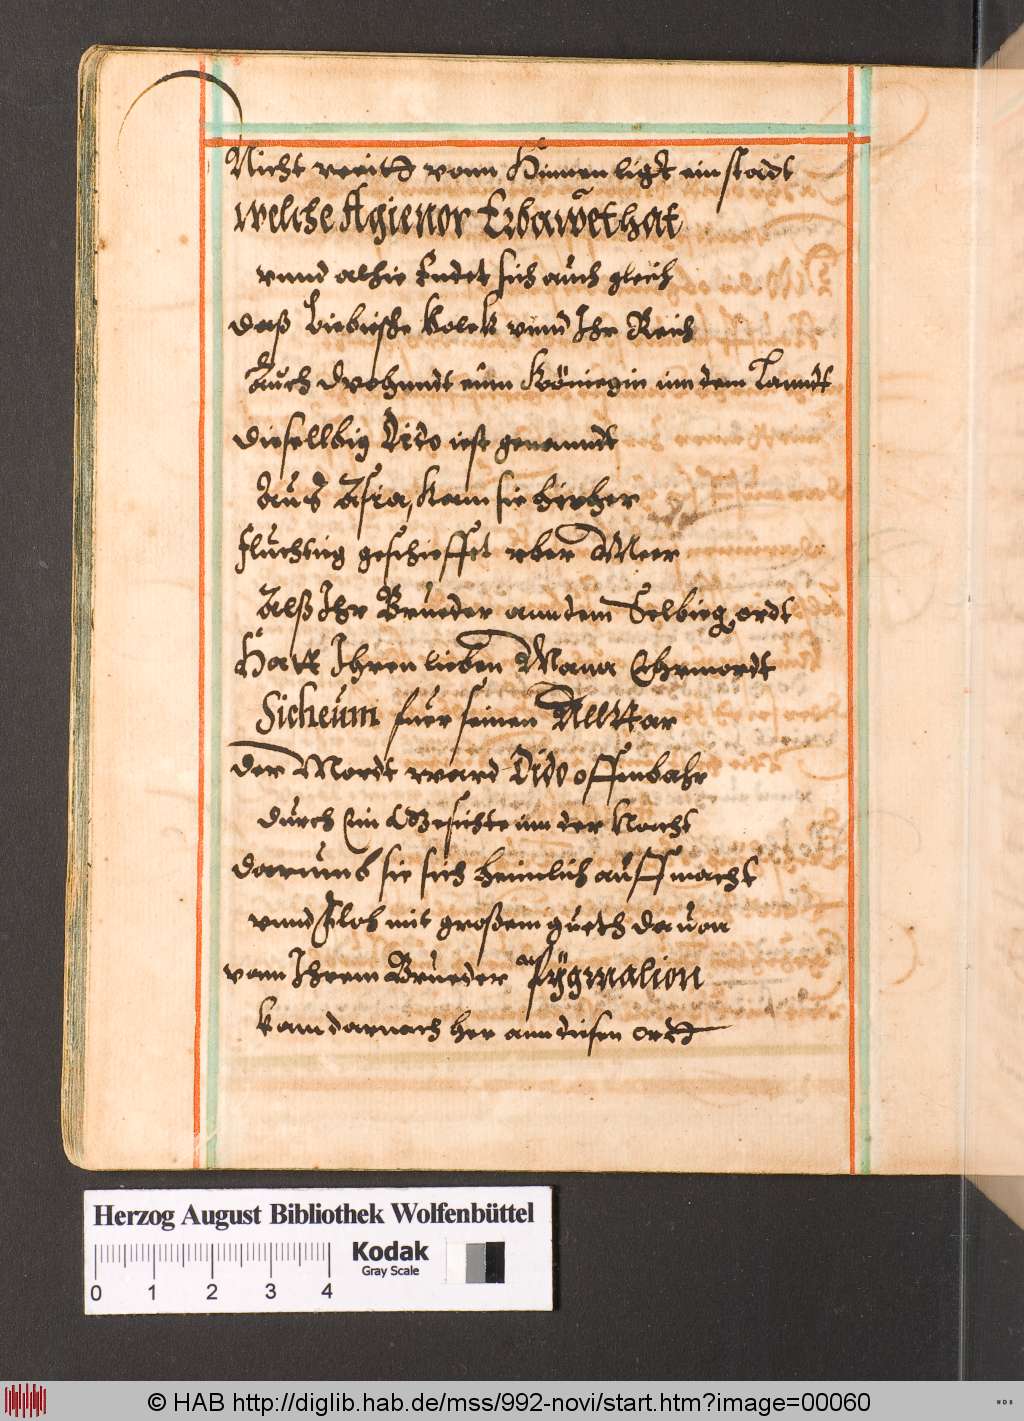 Nicht weitt vonn Hinnen ligdt ein stadt
welche Agienor Erbawet hat
vnnd alhie Endet sich auch gleich
daß Liebische Volck vnnd Ihr Reich
Auch drohnndt einn Königin inn dem Lanndt
dieselbig Dido ist genanndt
Auß Asia, kam sie hirher
fluchtig geschiffet vber Meer
Alß Ihr Brueder ann dem Selbieg ordt
Hatt Ihren lieben Mann Ehrmordt
Sicheum fuer seinen Alltar
der Mordt ward Dido offenbahr
durch Ein Gesichte inn der Nacht
darumb sie sich heimlich auff macht
vnnd floh mit großem gueth dauon
vonn Ihrem Brueder Pÿgmalion
kam darnach her ann diesen ordt
Herzog August Bibliothek Wolfenbüttel
Kodak
Gray Scale
0 1 2 3 4
© HAB http://diglib.hab.de/mss/992-novi/start.htm?image=00060